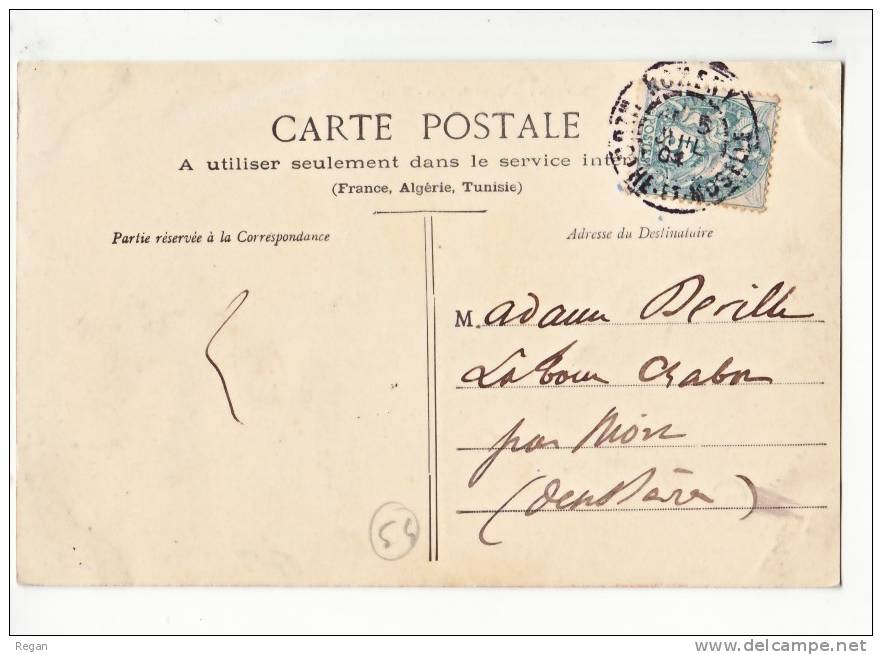 CARTE POSTALE
A utiliser seulement dans le service inter
(France, Algérie, Tunisie)
Partie réservée à la Correspondance
Adresse du Destinataire
M. adame Deville
La Tour Chabot
par Niort
(Deux Sèvres)
54
Regan
delcampe.net